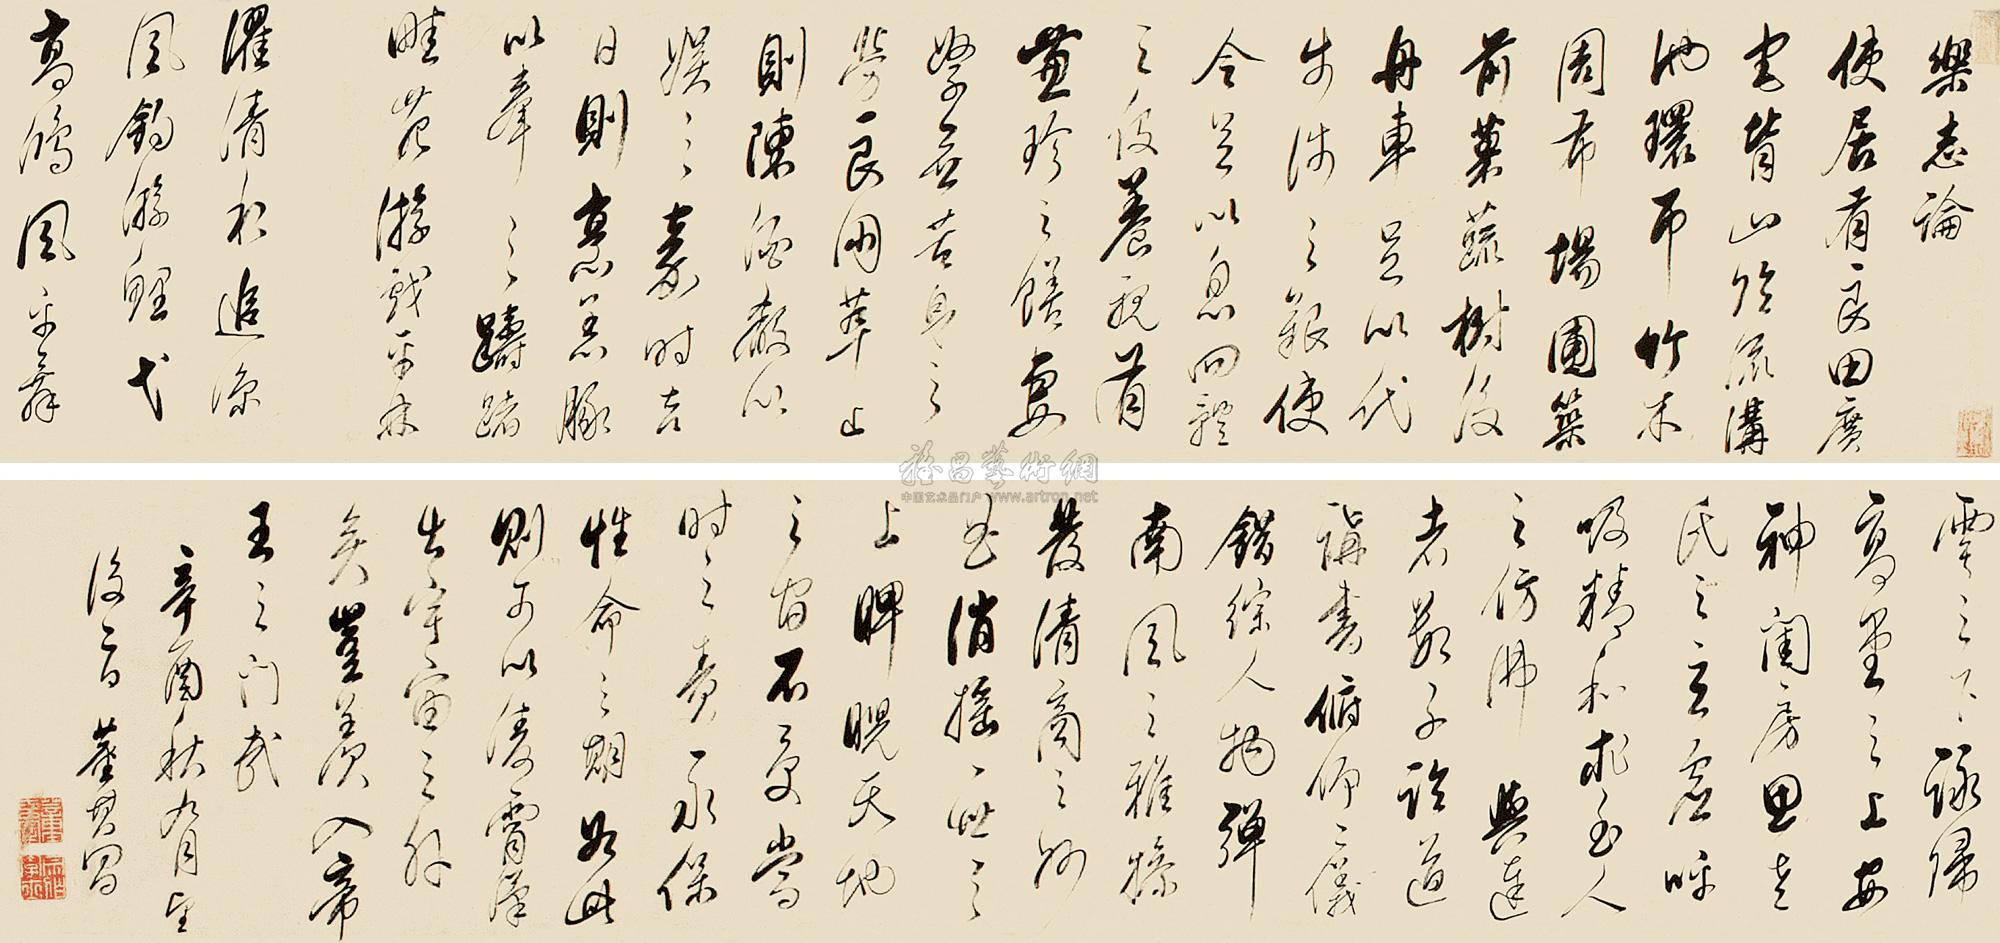 樂志論
使居有良田廣
宅背山臨流溝
池環帀竹木
周布場圃築
前菓蔬樹後
舟車足以代
步涉之難使
令足以息四體
之役養親有
兼珍之饍妻
孥無苦身之
勞良朋萃止
則陳酒殽以
娛之嘉時吉
日則烹羔豚
以奉之躊躇
畦苑遊戲平林
濯清水追涼
風釣游鯉弋
高鴻風乎舞
雩之下詠歸
高堂之上安
神閨房思老
氏之玄虛呼
吸精和求至人
之仿彿與達
者數子論道
講書俯仰二儀
錯綜人物彈
南風之雅操
發清商之妙
曲逍搖一世之
上睥睨天地
之間不受當
時之責永保
性命之期如此
則可以凌霄漢
出宇宙之外
矣豈羨入帝
王之門哉
辛酉秋九月望
後二日董其昌
雅昌藝術網
中国艺术品门户 www.artron.net